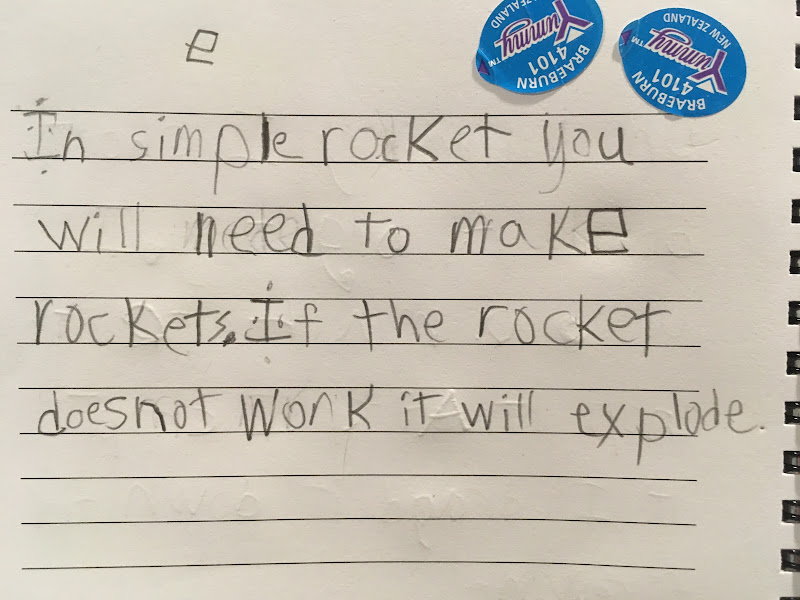 e
Yummy™
NEW ZEALAND
4101
BRAEBURN
Yummy™
NEW ZEALAND
4101
BRAEBURN
In simple rocket you
will need to make
rockets. If the rocket
doesnot work it will explode.